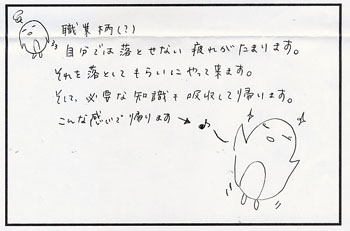 職業柄(?)
自分では落とせない疲れがたまります。
それを落としてもらいにやって来ます。
そして、必要な知識も吸収して帰ります。
こんな感じで帰ります→